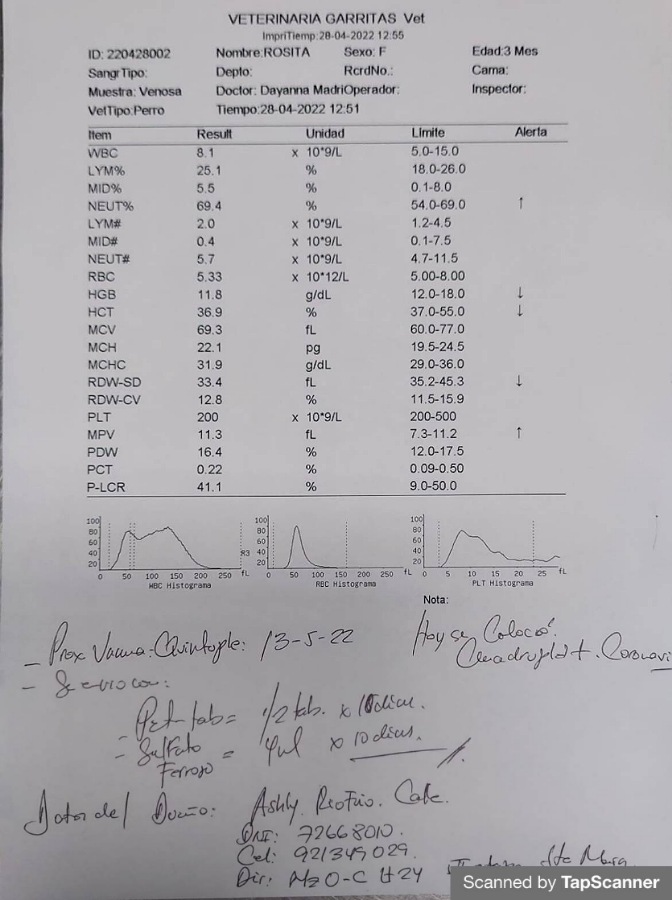 VETERINARIA GARRITAS Vet
ImpriTiemp:28-04-2022 12:55
ID: 220428002 Nombre:ROSITA Sexo: F Edad:3 Mes
SangrTipo: Depto: RcrdNo.: Cama:
Muestra: Venosa Doctor: Dayanna MadriOperador: Inspector:
VetTipo:Perro Tiempo:28-04-2022 12:51
Item Result Unidad Límite Alerta
WBC 8.1 x 10^9/L 5.0-15.0
LYM% 25.1 % 18.0-26.0
MID% 5.5 % 0.1-8.0
NEUT% 69.4 % 54.0-69.0 ↑
LYM# 2.0 x 10^9/L 1.2-4.5
MID# 0.4 x 10^9/L 0.1-7.5
NEUT# 5.7 x 10^9/L 4.7-11.5
RBC 5.33 x 10^12/L 5.00-8.00
HGB 11.8 g/dL 12.0-18.0 ↓
HCT 36.9 % 37.0-55.0 ↓
MCV 69.3 fL 60.0-77.0
MCH 22.1 pg 19.5-24.5
MCHC 31.9 g/dL 29.0-36.0
RDW-SD 33.4 fL 35.2-45.3 ↓
RDW-CV 12.8 % 11.5-15.9
PLT 200 x 10^9/L 200-500
MPV 11.3 fL 7.3-11.2 ↑
PDW 16.4 % 12.0-17.5
PCT 0.22 % 0.09-0.50
P-LCR 41.1 % 9.0-50.0
100 100 100
80 80 80
60 60 60
40 40 40
20 20 20
0 50 100 150 200 250 fL 0 50 100 150 200 250 fL 0 5 10 15 20 25 fL
WBC Histograma RBC Histograma PLT Histograma
Nota:
- Prox Vacuna: Quintuple: 13-5-22
Hoy se Colocó
Cuadruple + Coronavi
- Se envio con:
Pet-tab = 1/2 tab. x 10 dias.
- Sulfato Ferroso = 4ml x 10 dias.
Dator del Dueño: Ashly
DNI: 72668010.
Cel: 921349029.
Dir: Mz O-C Lt 24
Scanned by TapScanner